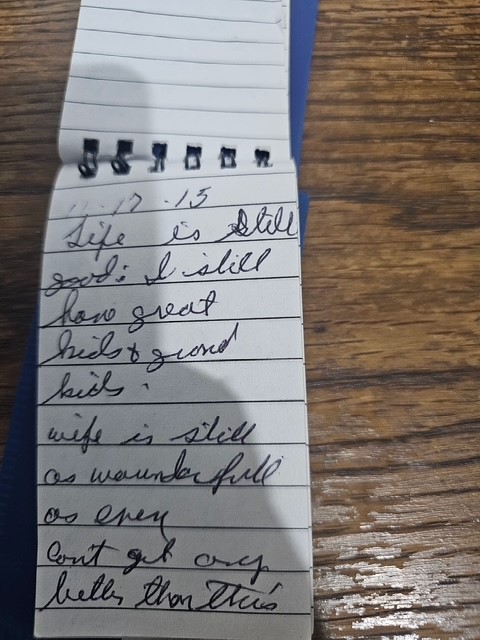 11-17-15
Life is still
good: I still
have great
kids & grand
kids.
wife is still
as wounderfull
as every
cant get any
better than this